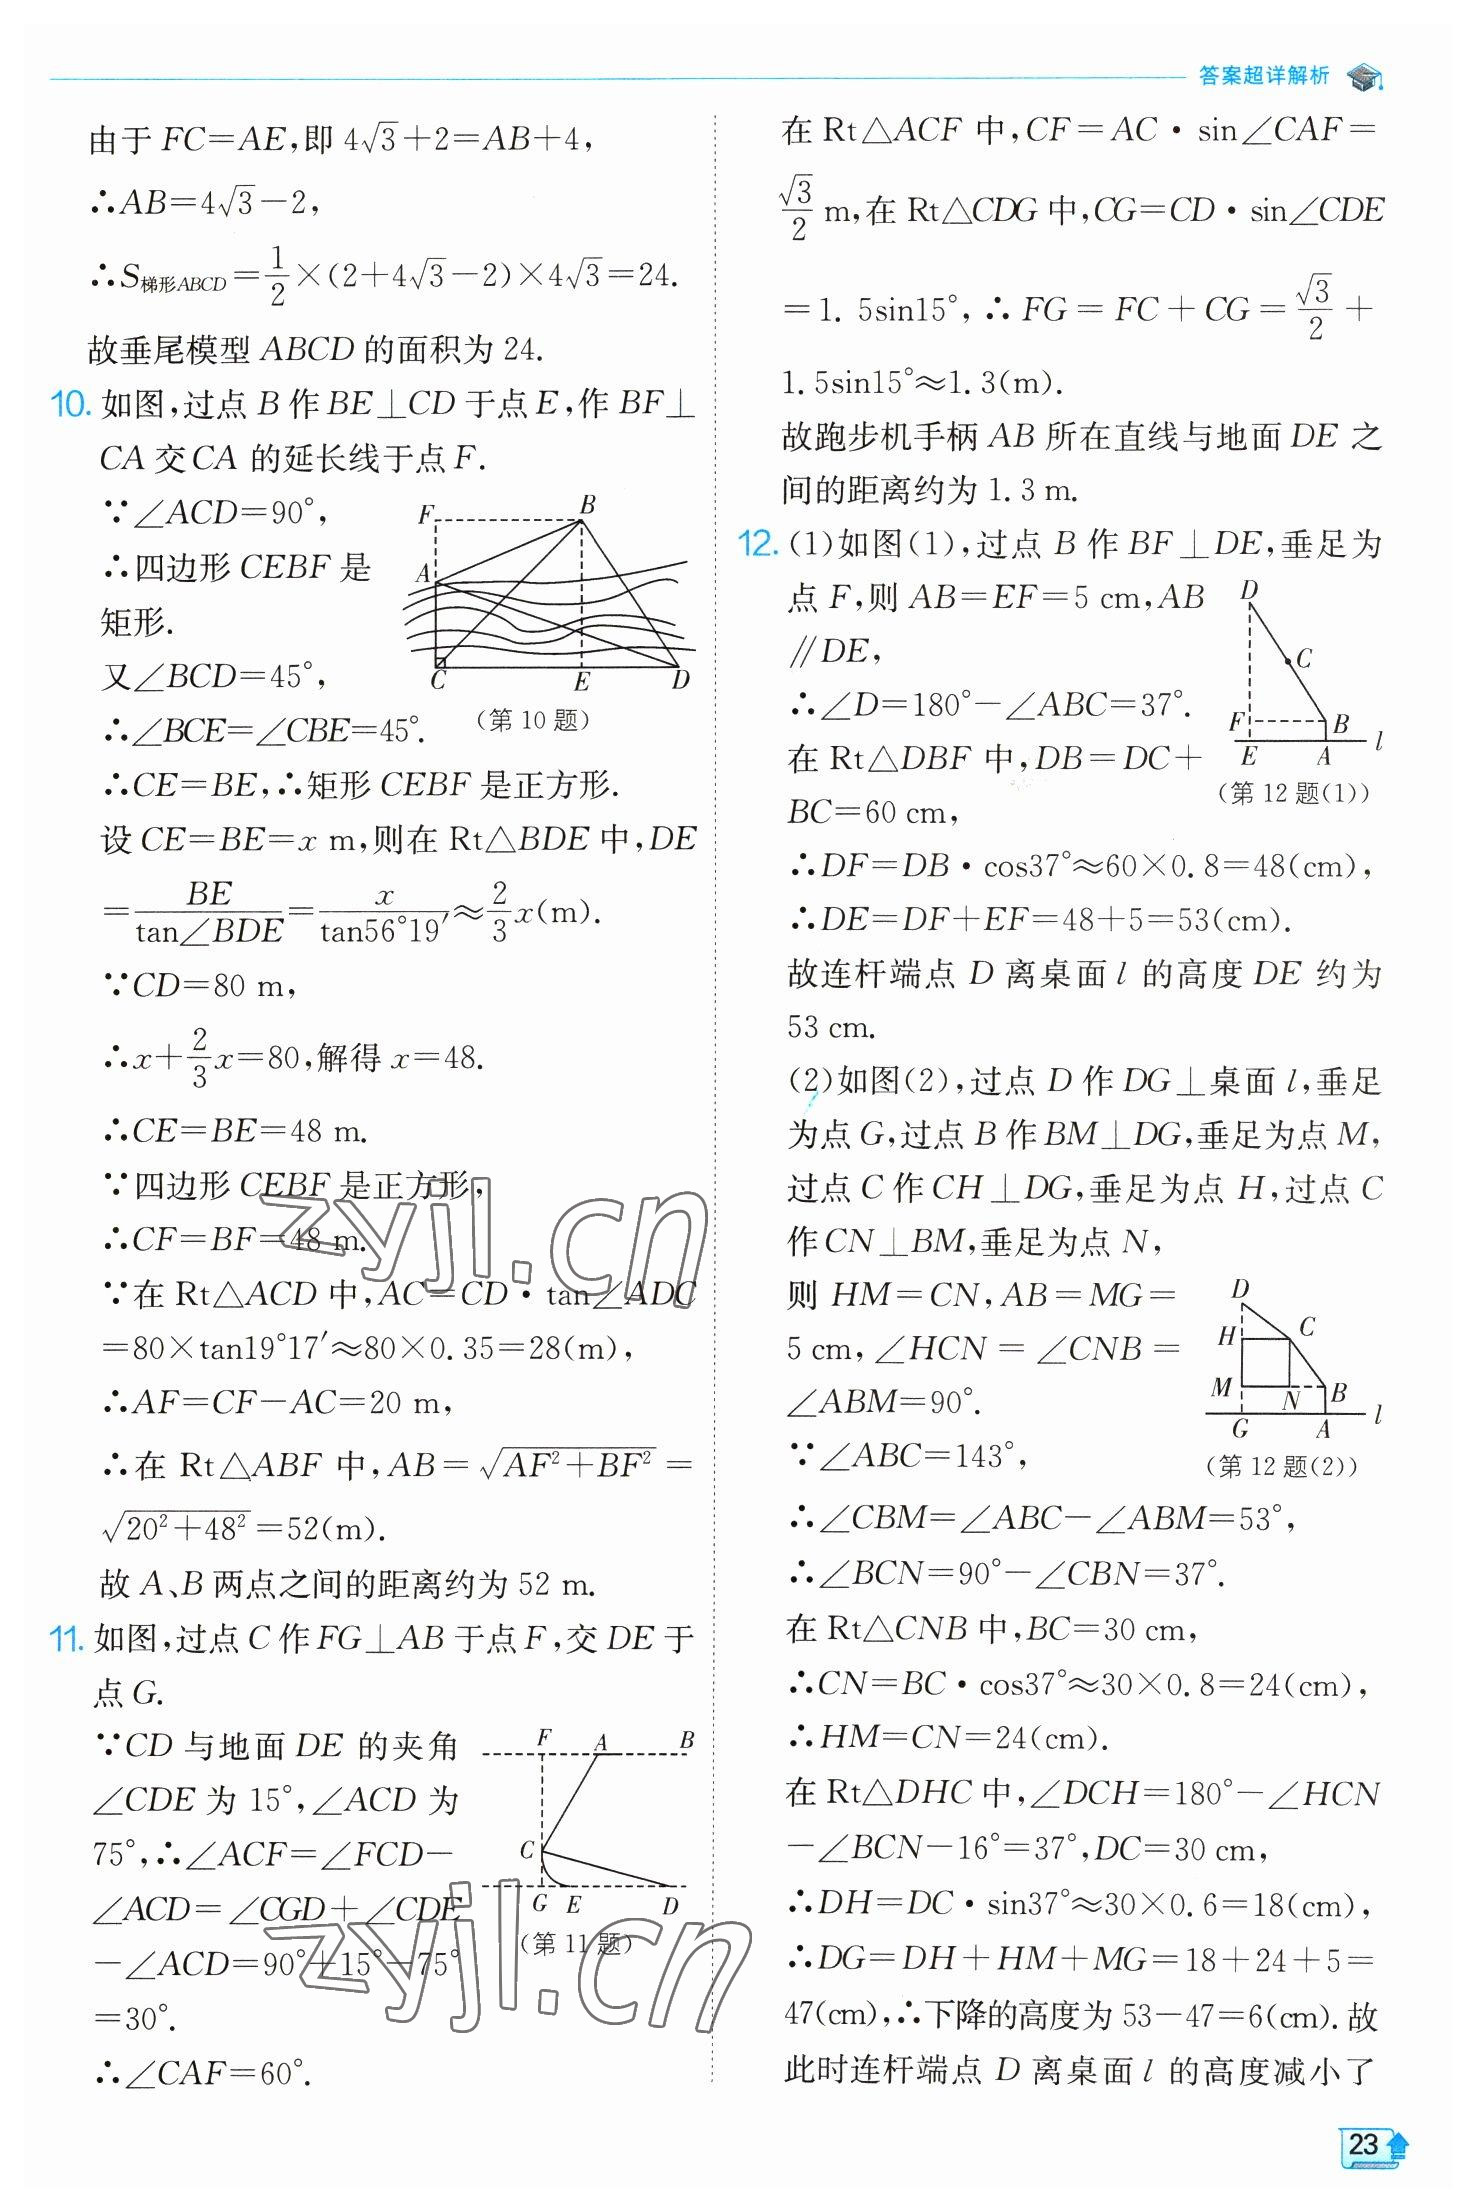 答案超详解析
由于 FC=AE,即 4√3+2=AB+4,
∴AB=4√3-2,
∴S梯形ABCD=1/2×(2+4√3-2)×4√3=24.
故垂尾模型 ABCD 的面积为 24.
10. 如图,过点 B 作 BE⊥CD 于点 E,作 BF⊥
CA 交 CA 的延长线于点 F.
∵∠ACD=90°,
∴四边形 CEBF 是
矩形.
又∠BCD=45°,
F B A C E D
(第 10 题)
∴∠BCE=∠CBE=45°.
∴CE=BE,∴矩形 CEBF 是正方形.
设 CE=BE=x m,则在 Rt△BDE 中,DE
=BE/tan∠BDE=x/tan56°19′≈2/3x(m).
∵CD=80 m,
∴x+2/3x=80,解得 x=48.
∴CE=BE=48 m.
∵四边形 CEBF 是正方形,
∴CF=BF=48 m.
∵在 Rt△ACD 中,AC=CD·tan∠ADC
=80×tan19°17′≈80×0.35=28(m),
∴AF=CF-AC=20 m,
∴在 Rt△ABF 中,AB=√(AF²+BF²)=
√(20²+48²)=52(m).
故 A、B 两点之间的距离约为 52 m.
11. 如图,过点 C 作 FG⊥AB 于点 F,交 DE 于
点 G.
∵CD 与地面 DE 的夹角
∠CDE 为 15°,∠ACD 为
75°,∴∠ACF=∠FCD-
∠ACD=∠CGD+∠CDE
-∠ACD=90°+15°-75°
=30°.
∴∠CAF=60°.
F A B C G E D
(第 11 题)
zyjl.cn
zyjl.cn
在 Rt△ACF 中,CF=AC·sin∠CAF=
√3/2 m,在 Rt△CDG 中,CG=CD·sin∠CDE
=1.5sin15°,∴FG=FC+CG=√3/2+
1.5sin15°≈1.3(m).
故跑步机手柄 AB 所在直线与地面 DE 之
间的距离约为 1.3 m.
12. (1)如图(1),过点 B 作 BF⊥DE,垂足为
点 F,则 AB=EF=5 cm,AB
∥DE,
∴∠D=180°-∠ABC=37°.
在 Rt△DBF 中,DB=DC+
BC=60 cm,
D C F B E A l
(第 12 题(1))
∴DF=DB·cos37°≈60×0.8=48(cm),
∴DE=DF+EF=48+5=53(cm).
故连杆端点 D 离桌面 l 的高度 DE 约为
53 cm.
(2)如图(2),过点 D 作 DG⊥桌面 l,垂足
为点 G,过点 B 作 BM⊥DG,垂足为点 M,
过点 C 作 CH⊥DG,垂足为点 H,过点 C
作 CN⊥BM,垂足为点 N,
则 HM=CN,AB=MG=
5 cm,∠HCN=∠CNB=
∠ABM=90°.
∵∠ABC=143°,
D H C M N B G A l
(第 12 题(2))
∴∠CBM=∠ABC-∠ABM=53°,
∴∠BCN=90°-∠CBN=37°.
在 Rt△CNB 中,BC=30 cm,
∴CN=BC·cos37°≈30×0.8=24(cm),
∴HM=CN=24(cm).
在 Rt△DHC 中,∠DCH=180°-∠HCN
-∠BCN-16°=37°,DC=30 cm,
∴DH=DC·sin37°≈30×0.6=18(cm),
∴DG=DH+HM+MG=18+24+5=
47(cm),∴下降的高度为 53-47=6(cm).故
此时连杆端点 D 离桌面 l 的高度减小了
23